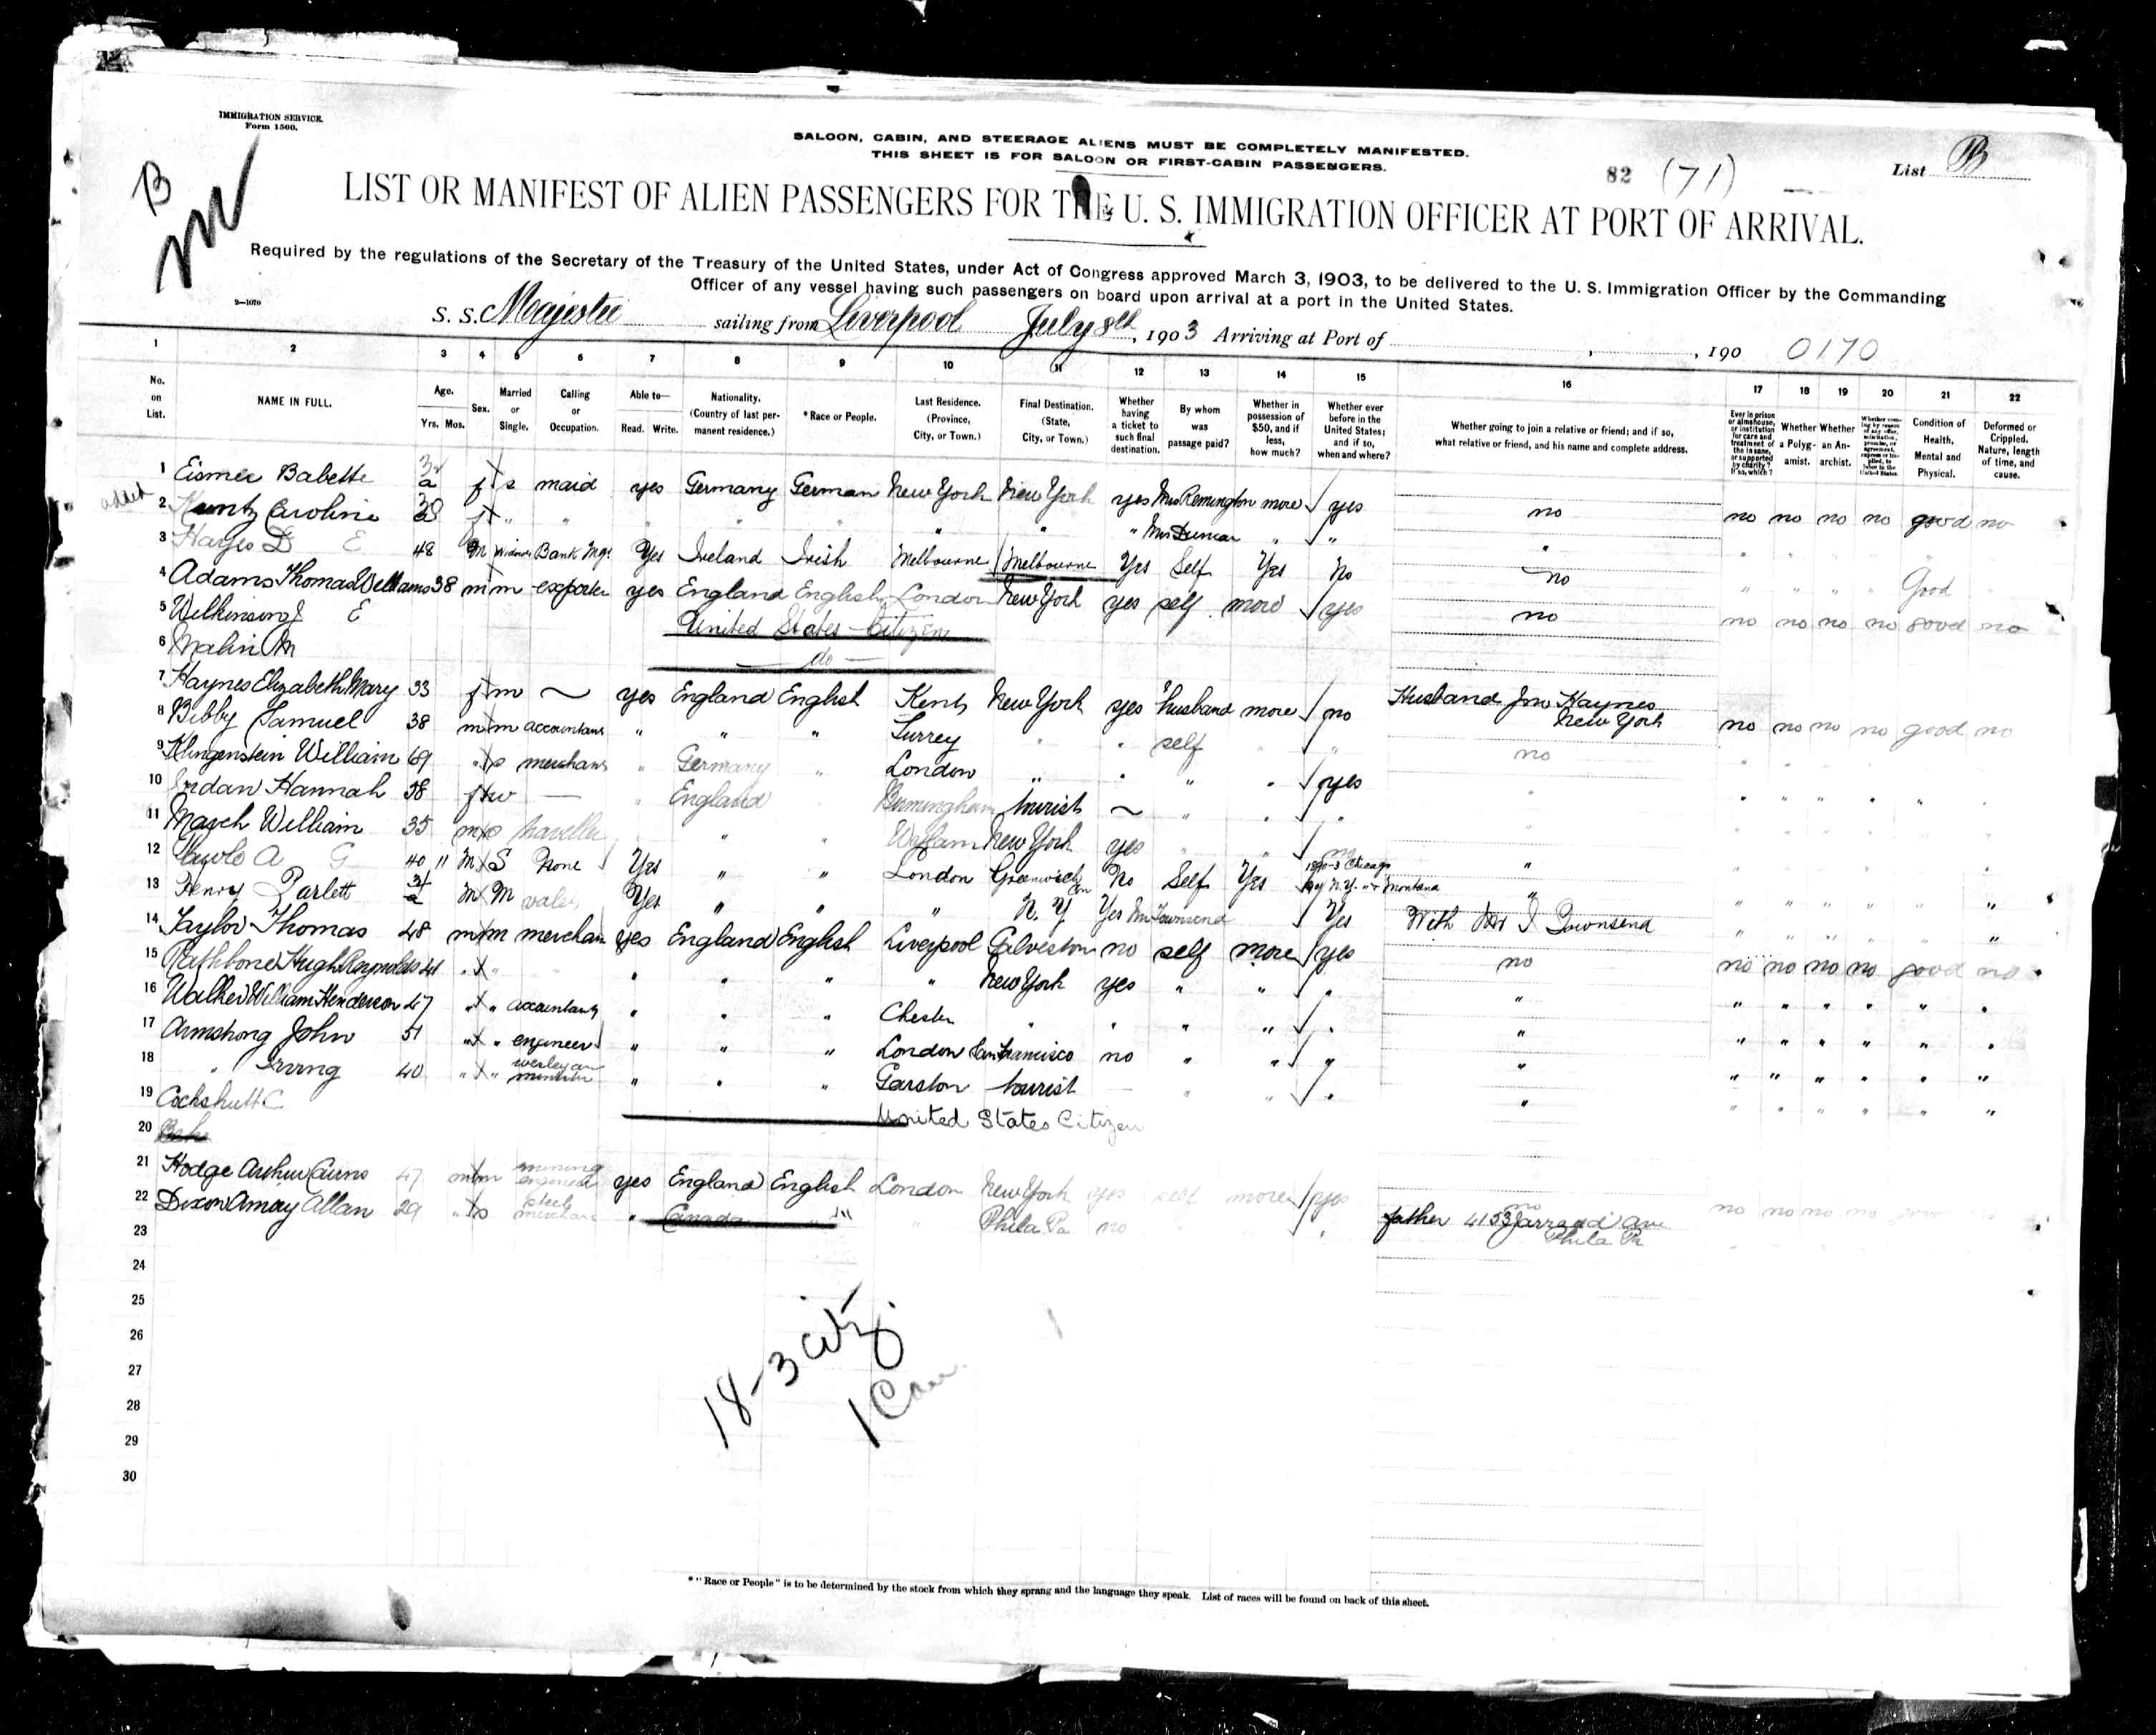 IMMIGRATION SERVICE.
Form 1500.
SALOON, CABIN, AND STEERAGE ALIENS MUST BE COMPLETELY MANIFESTED.
THIS SHEET IS FOR SALOON OR FIRST-CABIN PASSENGERS.
B
82 (71) List B
LIST OR MANIFEST OF ALIEN PASSENGERS FOR THE U. S. IMMIGRATION OFFICER AT PORT OF ARRIVAL.
Required by the regulations of the Secretary of the Treasury of the United States, under Act of Congress approved March 3, 1903, to be delivered to the U. S. Immigration Officer by the Commanding
Officer of any vessel having such passengers on board upon arrival at a port in the United States.
2—1070
S. S. Majestic sailing from Liverpool July 8th, 1903 Arriving at Port of , 190 0170
1 2 3 4 5 6 7 8 9 10 11 12 13 14 15 16 17 18 19 20 21 22
No. on List. NAME IN FULL. Age. Yrs. Mos. Sex. Married or Single. Calling or Occupation. Able to— Read. Write. Nationality. (Country of last permanent residence.) *Race or People. Last Residence. (Province, City, or Town.) Final Destination. (State, City, or Town.) Whether having a ticket to such final destination. By whom was passage paid? Whether in possession of $50, and if less, how much? Whether ever before in the United States; and if so, when and where? Whether going to join a relative or friend; and if so, what relative or friend, and his name and complete address. Ever in prison or almshouse, or institution for care and treatment of the insane, or supported by charity? If so, which? Whether a Polygamist. Whether an Anarchist. Condition of Health, Mental and Physical. Deformed or Crippled. Nature, length of time, and cause.
1 Eismer Babette f s maid yes Germany German New York New York yes Mrs Remington more yes no no no no no good no
2 Kuntz Caroline f " " " " " " " " Mrs " " "
3 Hayes D E 48 M Widower Bank Mgr. Yes Ireland Irish Melbourne Melbourne Yes Self Yes No no " " " " Good
4 Adams Thomas Williams 38 m m exporter yes England English London New York yes self more yes no no no no no good no
5 Wilkinson J E United States Citizen
6 Malin M do
7 Haynes Elizabeth Mary 33 f m — yes England English Kent New York yes husband more no Husband Jno Haynes New York no no no no good no
8 Bibby Samuel 38 m m accountant " " " Surrey " " self " " no
9 Klingenstein William 69 " s merchant " Germany " London " " " " yes "
10 Jordan Hannah 38 f w — " England Birmingham tourist — " " " "
11 March William 35 m s traveller " " Wylam New York yes " " no "
12 A G 40 11 M S None Yes " " London Greenwich No Self Yes 1890-3 Chicago "
13 Henry Parlett M M valet Yes " " " N. Y Yes Mr Townsend Yes With Mr J Townsend
14 Taylor Thomas 48 m m merchant yes England English Liverpool Galveston no self more yes no no no no no good no
15 Rathbone Hugh Reynolds 41 " " " " " " " New York yes " " " "
16 Walker William Henderson 47 " " accountant " " " Chester " " " " " "
17 Armstrong John 51 " " engineer " " " London San Francisco no " " " "
18 " Irving 40 " " wesleyan minister " " " Garston tourist — " " " "
19 Cockshutt C United States Citizen
20
21 Hodge Arthur Cairns 47 m m mining engineer yes England English London New York yes self more yes no no no no no
22 Dixon Amory Allan 29 " s steel merchant " Canada " " Phila Pa no " father 4153 Ave Phila Pa
23
24
25
26
27
28
29
30
18-3 citz
1 Can
*"Race or People" is to be determined by the stock from which they sprang and the language they speak. List of races will be found on back of this sheet.